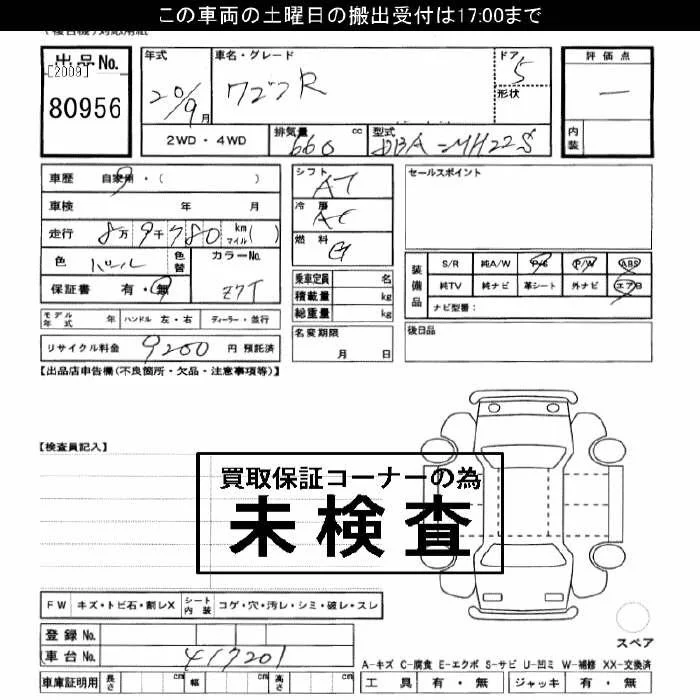 この車両の土曜日の搬出受付は17:00まで
出品No.
[2009]
80956
年式
20/9月
車名・グレード
ワゴンR
ドア
5
形状
評価点
—
内装
2WD・4WD
排気量
660 cc
型式
DBA-MH22S
車歴 自家用・( )
車検 年 月
走行 8万9千780 km マイル( )
色 パール
色替
カラーNo.
Z7T
保証書 有・無
モデル年式 年 ハンドル 左・右 ディーラー・並行
リサイクル料金 9200 円 預託済
シフト
AT
冷房
AC
燃料
G
乗車定員 名
積載量 kg
総重量 kg
名変期限
月 日
セールスポイント
装備品
S/R 純A/W P/S P/W ABS
純TV 純ナビ 革シート 外ナビ エアB
ナビ型番:
後日品
【出品店申告欄(不良箇所・欠品・注意事項等)】
【検査員記入】
買取保証コーナーの為
未検査
FW キズ・トビ石・割レX シート内装 コゲ・穴・汚レ・シミ・破レ・スレ
登録No.
車台No. 417201
車庫証明用 長さ cm 幅 cm 高さ cm
スペア
A-キズ C-腐食 E-エクボ S-サビ U-凹ミ W-補修 XX-交換済
工具 有・無 ジャッキ 有・無